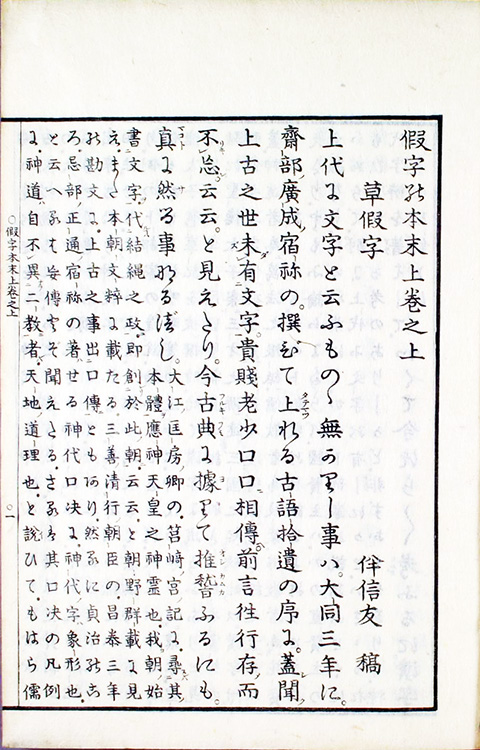 假字能本末上卷之上
草假字
伴信友 稿
上代に文字と云ふもの〻無かりし事ハ。大同三年に。
齋部廣成宿祢の。撰びて上れる古語拾遺の序に。蓋聞
上古之世未有文字貴賤老少口口相傳前言往行存而
不忘云云。と見えたり。今古典に據りて推誓ふるにも。
真に然る事なるべし。大江匡房卿の。筥崎宮記に尋其
本體應神天皇之神靈也。我朝始
書文字代結繩之政即創於此朝云云と朝野群載に見
え。また本朝文粹に載たる。三善清行朝臣の昌泰三年
能勘文に。上古之事出口傳ともあり然るに貞治能ころ
忌部正通宿祢の著せる神代口决に。神代字象形也。
と云へるも妄傳也と聞えたるさるを其口决の凡例
に。神道自不異二教者天地道理也。と説ひて。もはら儒
○假字本末上卷之上
○一